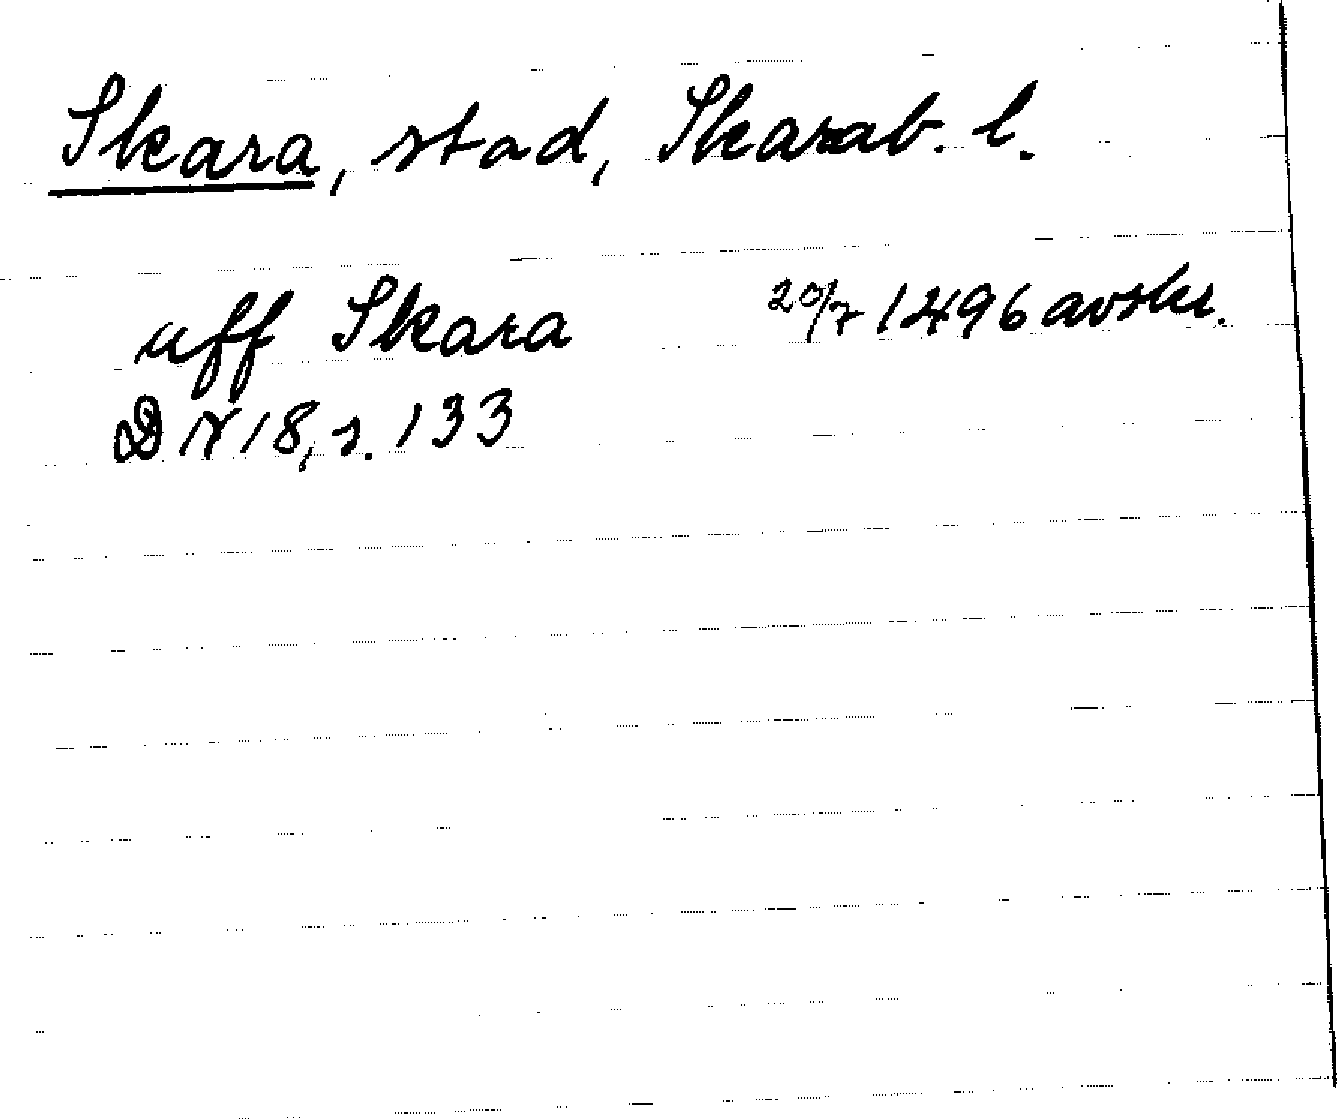 Skara, stad, Skarab. l.
uff Skara 20/7 1496 avskr.
DN 18, s. 133